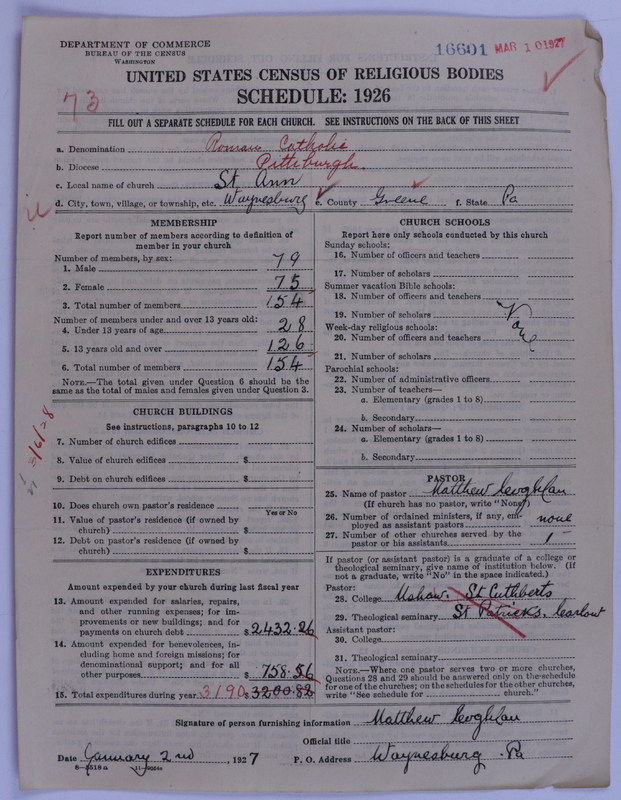 DEPARTMENT OF COMMERCE
BUREAU OF THE CENSUS
WASHINGTON
16601 MAR 10 1927
UNITED STATES CENSUS OF RELIGIOUS BODIES
SCHEDULE: 1926
73
FILL OUT A SEPARATE SCHEDULE FOR EACH CHURCH. SEE INSTRUCTIONS ON THE BACK OF THIS SHEET
a. Denomination Roman Catholic
b. Diocese Pittsburgh
c. Local name of church St Ann
d. City, town, village, or township, etc. Waynesburg e. County Greene f. State Pa
MEMBERSHIP
Report number of members according to definition of
member in your church
Number of members, by sex:
1. Male 79
2. Female 75
3. Total number of members 154
Number of members under and over 13 years old:
4. Under 13 years of age 28
5. 13 years old and over 126
6. Total number of members 154
NOTE.—The total given under Question 6 should be the
same as the total of males and females given under Question 3.
CHURCH BUILDINGS
See instructions, paragraphs 10 to 12
7. Number of church edifices
8. Value of church edifices $
9. Debt on church edifices $
10. Does church own pastor's residence
Yes or No
11. Value of pastor's residence (if owned by
church) $
12. Debt on pastor's residence (if owned by
church) $
3/6/28
EXPENDITURES
Amount expended by your church during last fiscal year
13. Amount expended for salaries, repairs,
and other running expenses; for im-
provements or new buildings; and for
payments on church debt $2432.26
14. Amount expended for benevolences, in-
cluding home and foreign missions; for
denominational support; and for all
other purposes $758.56
15. Total expenditures during year 3190 $3200.82
CHURCH SCHOOLS
Report here only schools conducted by this church
Sunday schools:
16. Number of officers and teachers
17. Number of scholars
Summer vacation Bible schools:
18. Number of officers and teachers
19. Number of scholars
None
Week-day religious schools:
20. Number of officers and teachers
21. Number of scholars
Parochial schools:
22. Number of administrative officers
23. Number of teachers—
a. Elementary (grades 1 to 8)
b. Secondary
24. Number of scholars—
a. Elementary (grades 1 to 8)
b. Secondary
PASTOR
25. Name of pastor Matthew Coghlan
(If church has no pastor, write "None")
26. Number of ordained ministers, if any, em-
ployed as assistant pastors none
27. Number of other churches served by the
pastor or his assistants 1
If pastor (or assistant pastor) is a graduate of a college or
theological seminary, give name of institution below. (If
not a graduate, write "No" in the space indicated.)
Pastor:
28. College Ushaw. St Cuthberts
29. Theological seminary St Patricks, Carlow
Assistant pastor:
30. College
31. Theological seminary
NOTE.—Where one pastor serves two or more churches,
Questions 28 and 29 should be answered only on the schedule
for one of the churches; on the schedules for the other churches,
write "See schedule for church."
Signature of person furnishing information Matthew Coghlan
Official title
Date January 2nd, 1927 P. O. Address Waynesburg Pa